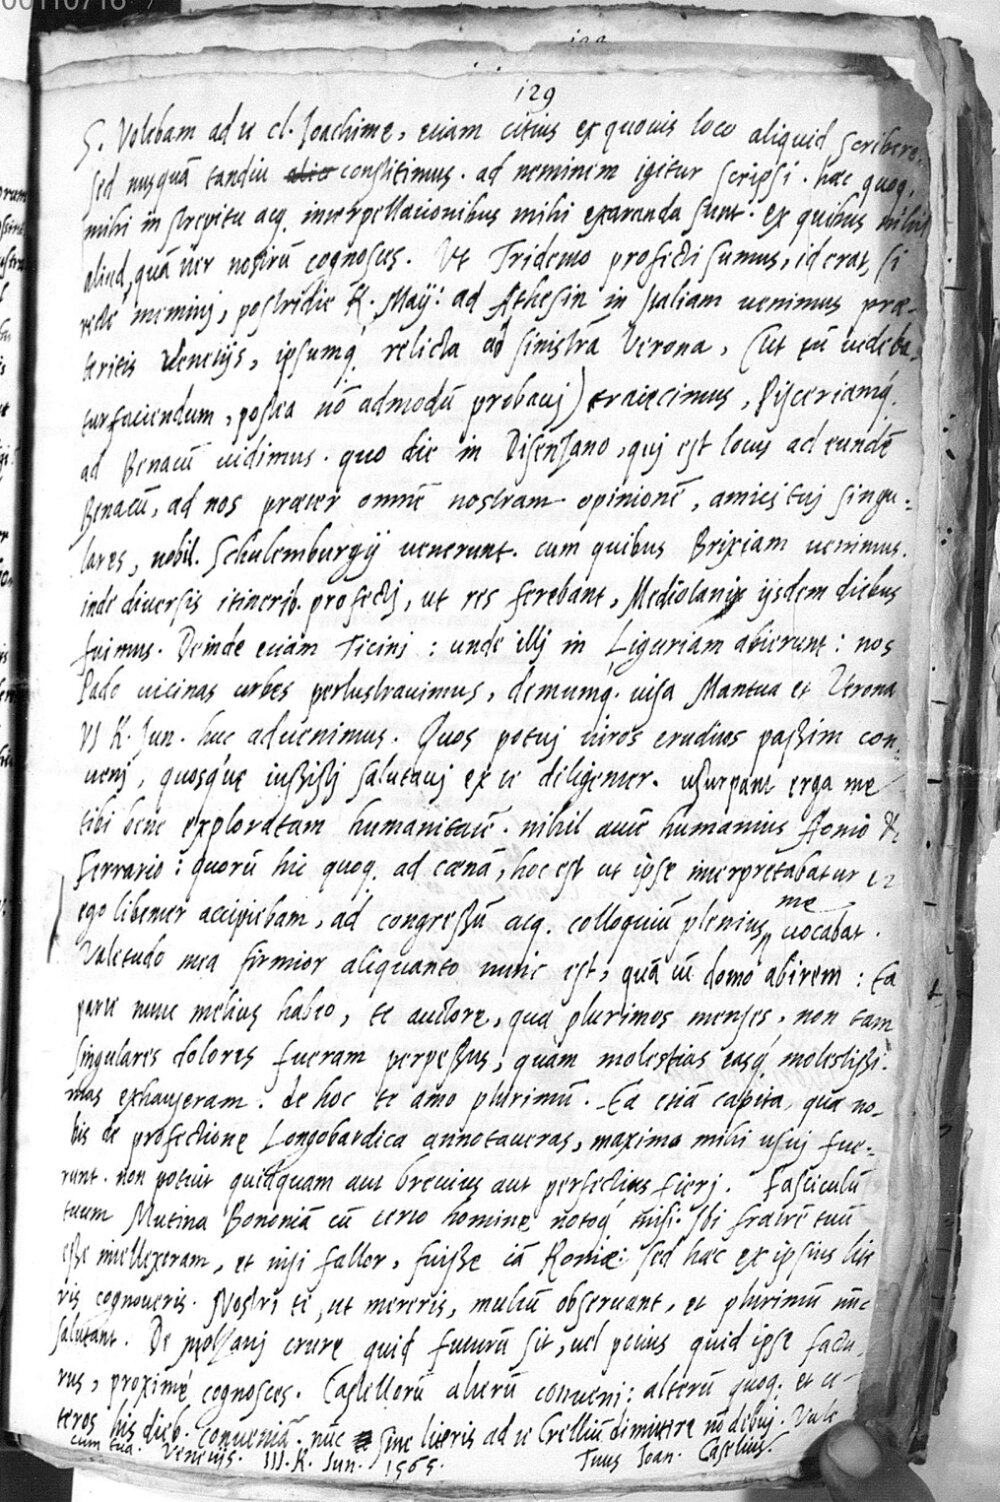 129
S. Volebam ad te cl. Joachime, etiam citius ex quouis loco aliquid scribere.
sed nusquā tandiu constitimus. ad neminem igitur scripsi. hæc quoq.
mihi in strepitu atq. interpellationibus mihi exaranda sunt. ex quibus nihil
aliud, quā iter nostrū cognosces. Ut Tridento profecti sumus, id erat, si
recte meminj, postridie K. Maij: ad Athesin in Italiam uenimus præ-
teritis Venetijs, ipsumq́ relicta ad sinistrā Verona, (ut tū uideba-
tur faciendum, postea nō admodū probauj) traiecimus, Pisceriamq́.
ad Benacū uidimus. quo die in Disenzano, quj est locus ad eundē
Benacū, ad nos præter omnē nostram opinionē, amici tuj singu-
lares, nobil. Schulemburgij uenerunt. cum quibus Brixiam uenimus.
inde diuersis itinerib. profectj, ut res ferebant, Mediolanj ijsdem diebus
fuimus. Deinde etiam Ticinj: unde illj in Liguriam abierunt: nos
Pado uicinas urbes perlustrauimus, demumq. uisa Mantua et Verona
VI K. Jun. huc aduenimus. Quos potuj uiros eruditos paßim con-
uenj, quosque iußistj salutauj ex te diligenter. usurpant erga me
tibi bene exploratam humanitatē. nihil autē humanius Aonio &
Ferrario: quorū hic quoq. ad cœnā, hoc est ut ipse interpretabatur et
ego libenter accipiebam, ad congreßū atq. colloquiū plenius me uocabat.
Valetudo mea firmior aliquanto nunc est, quā cū domo abirem: Ea
parte nunc melius habeo, te auctore, qua plurimos menses, non tam
singulares dolores fueram perpeßus, quam molestias easq́ molestißi-
mas exhauseram. de hoc te amo plurimū. Ea etiā capita, quæ no-
bis de profectione Longobardica annotaueras, maximo mihi usuj fue-
runt. non potuit quidquam aut breuius aut perfectius fierj. Fasciculū
tuum Mutina Bononiā cū certo homine notoq́ misi. Ibi fratrē tuū
eße intellexeram, et nisi fallor, fuiße iā Romæ: sed hæc ex ipsius lit
ris cognoueris. Nostri te, ut mereris, multū obseruant, et plurimū nūc
salutant. De Molzanj crure quid futurū sit, uel potius quid ipse factu-
rus, proxime cognosces. Castellorū alterū conueni: alterū quoq. et ce-
teros his dieb. conueniā. nūc sine literis ad te Crelliū dimittere nō debuj. Vale
cum tua. Venetijs. III. K. Jun. 1565. Tuus Joan. Caselius.